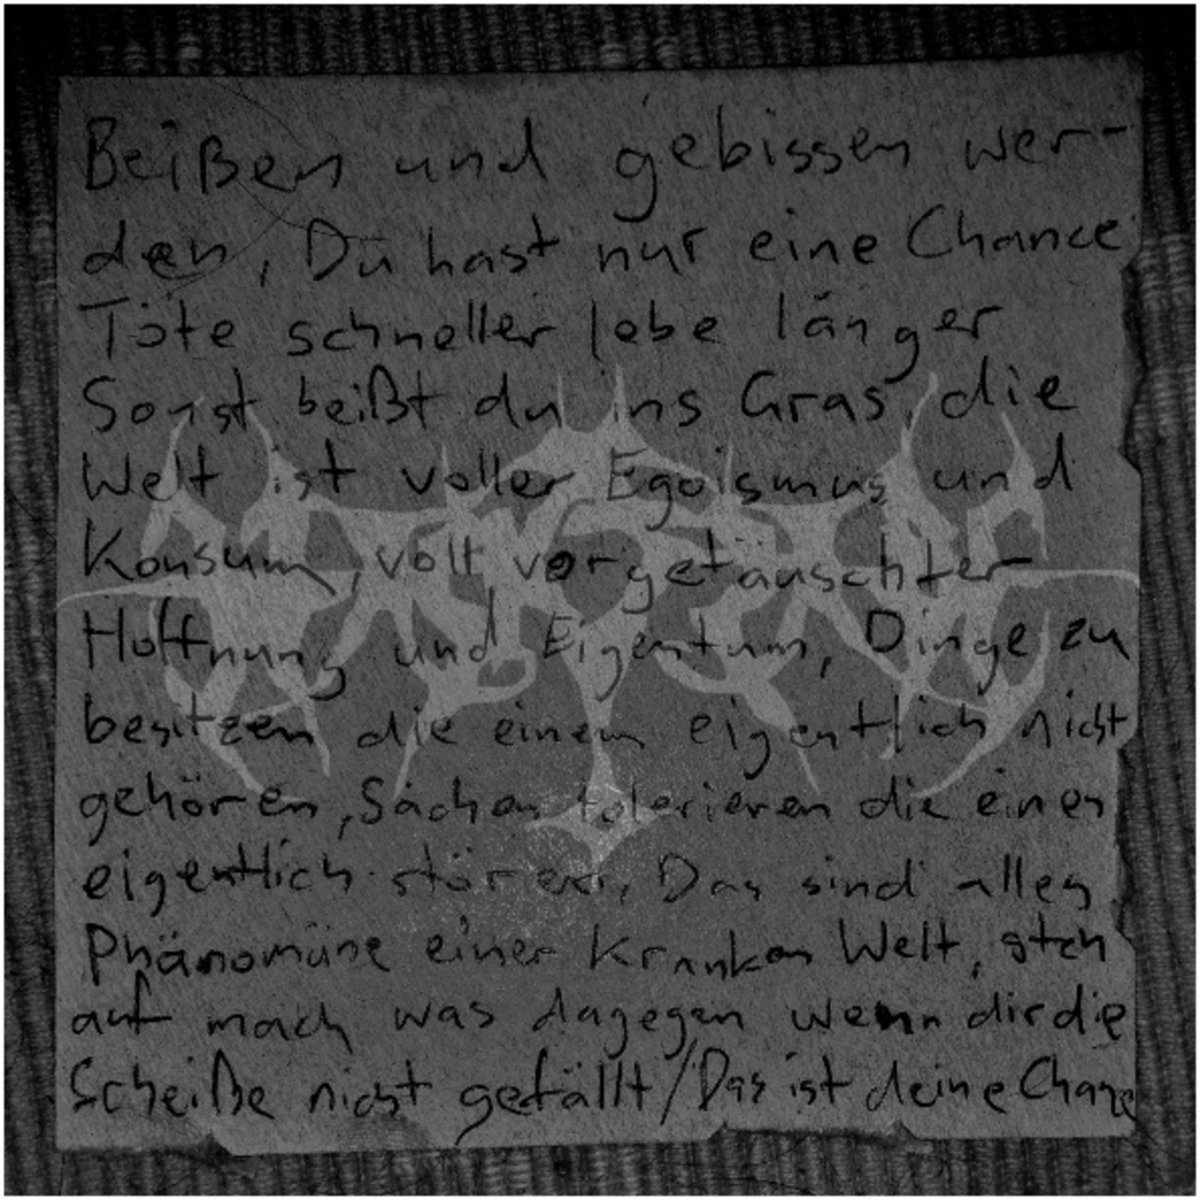 Beißen und gebissen wer-
den, Du hast nur eine Chance
Töte schneller lebe länger
Sonst beißt du ins Gras, die
Welt ist voller Egoismus und
Konsum, voll vorgetäuschter
Hoffnung und Eigentum, Dinge zu
besitzen die einem eigentlich nicht
gehören, Sachen tolerieren die einen
eigentlich stören, Das sind alles
Phänomäne einer Kranken Welt, steh
auf mach was dagegen wenn dir die
Scheiße nicht gefällt/Das ist deine Chance